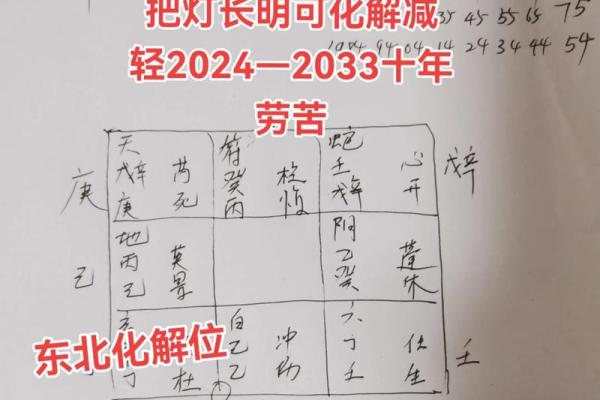 35 45 55 65 75
1984 94 04 14 24 34 44 54
把灯长明可化解减
轻2024—2033十年
劳苦
庚
天 戊辛 庚
芮 死
符 癸 丙
柱 惊
蛇 壬 戊辛
心 开
戊辛
己
地 丙 己
英 景
阴 乙 癸
蓬 休
东北化解位
丁
杜
白 己 乙
冲 伤
六 丁 壬
任 生
壬